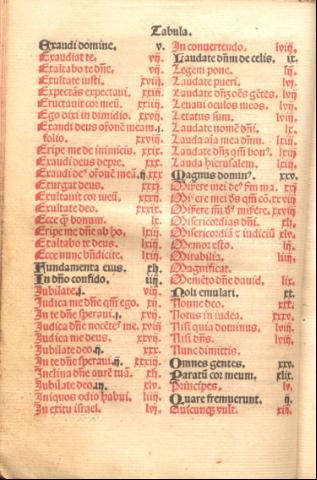 Tabula.
Exaudi domine. v.
Exaudiat te. vij.
Exaltabo te dñe. vij.
Exultate iusti. xviij.
Expectãs expectaui. xxiij.
Eructauit cor meũ. xxiiij.
Ego dixi in dimidio. xxvij.
Exaudi deus orõnẽ meam.j.
folio. xxviij.
Eripe me de inimicis. xxix.
Exaudi deus depre. xxx.
Exaudi deꝰ orõneꝫ meã.ij. xxx
Exurgat deus. xxxj.
Exultauit cor meũ. xxxj.
Exultate deo. xxxix.
Ecce ꝙ̃ bonum. lx.
Eripe me dñe ab ho. lxij.
Exaltabo te deus. lxiij.
Ecce nunc bñdicite. lxij.
Fundamenta eius. xlj.
In dño confido. iiij.
Iubilate.j.
Iudica me dñe qm̃ ego. xij.
In te dñe speraui.j. xvij.
Iudica dñe nocẽteꝰ me. xviij
Iudica me deus. xxvij.
Iubilate deo.ij. xxx.
In te dñe speraui.ij. xxxiij.
Inclina dñe aurẽ tuã. xlj.
Iubilate deo.iij. xlv.
Iniquos odio habui. liiij.
In exitu israel. lvj.
In conuertendo. lviij.
Laudate dñm de celis. ix.
Legem pone. lij.
Laudate pueri. lvj.
Laudate dñʒ oẽs gẽtes. lvij.
Leuaui oculos meos. lvij.
Letatus sum. lviij.
Laudate nomẽ dñi. lx.
Lauda aĩa mea dñm. lxiij.
Laudate dñʒ qm̃ bonꝰ. lxiij
Lauda hierusalem. lxiij.
Magnus dominꝰ. xxv.
Misereꝰ mei deꝰ fm̃ ma. xxj
Misereꝰ mei dꝰs qm̃ cõ.xxviij
Misere m̃ dꝰ misere. xxviij
Misericordias dñi. xlj.
Misericordiã ⁊ iudiciũ xlv.
Memor esto. lij.
Mirabilia. liiij.
Magnificat.
Memẽto dñe dauid. lix.
Noli emulari. xx.
Nonne deo. xxx.
Notus in iudea. xxxv.
Nisi quia dominus. lvij.
Nisi dñs. lviij.
Nunc dimittis.
Omnes gentes. xxv.
Paratũ cor meum. xlix.
Principes. lv.
Quare fremuerunt. ij.
Quicunqꝫ vult. xij.